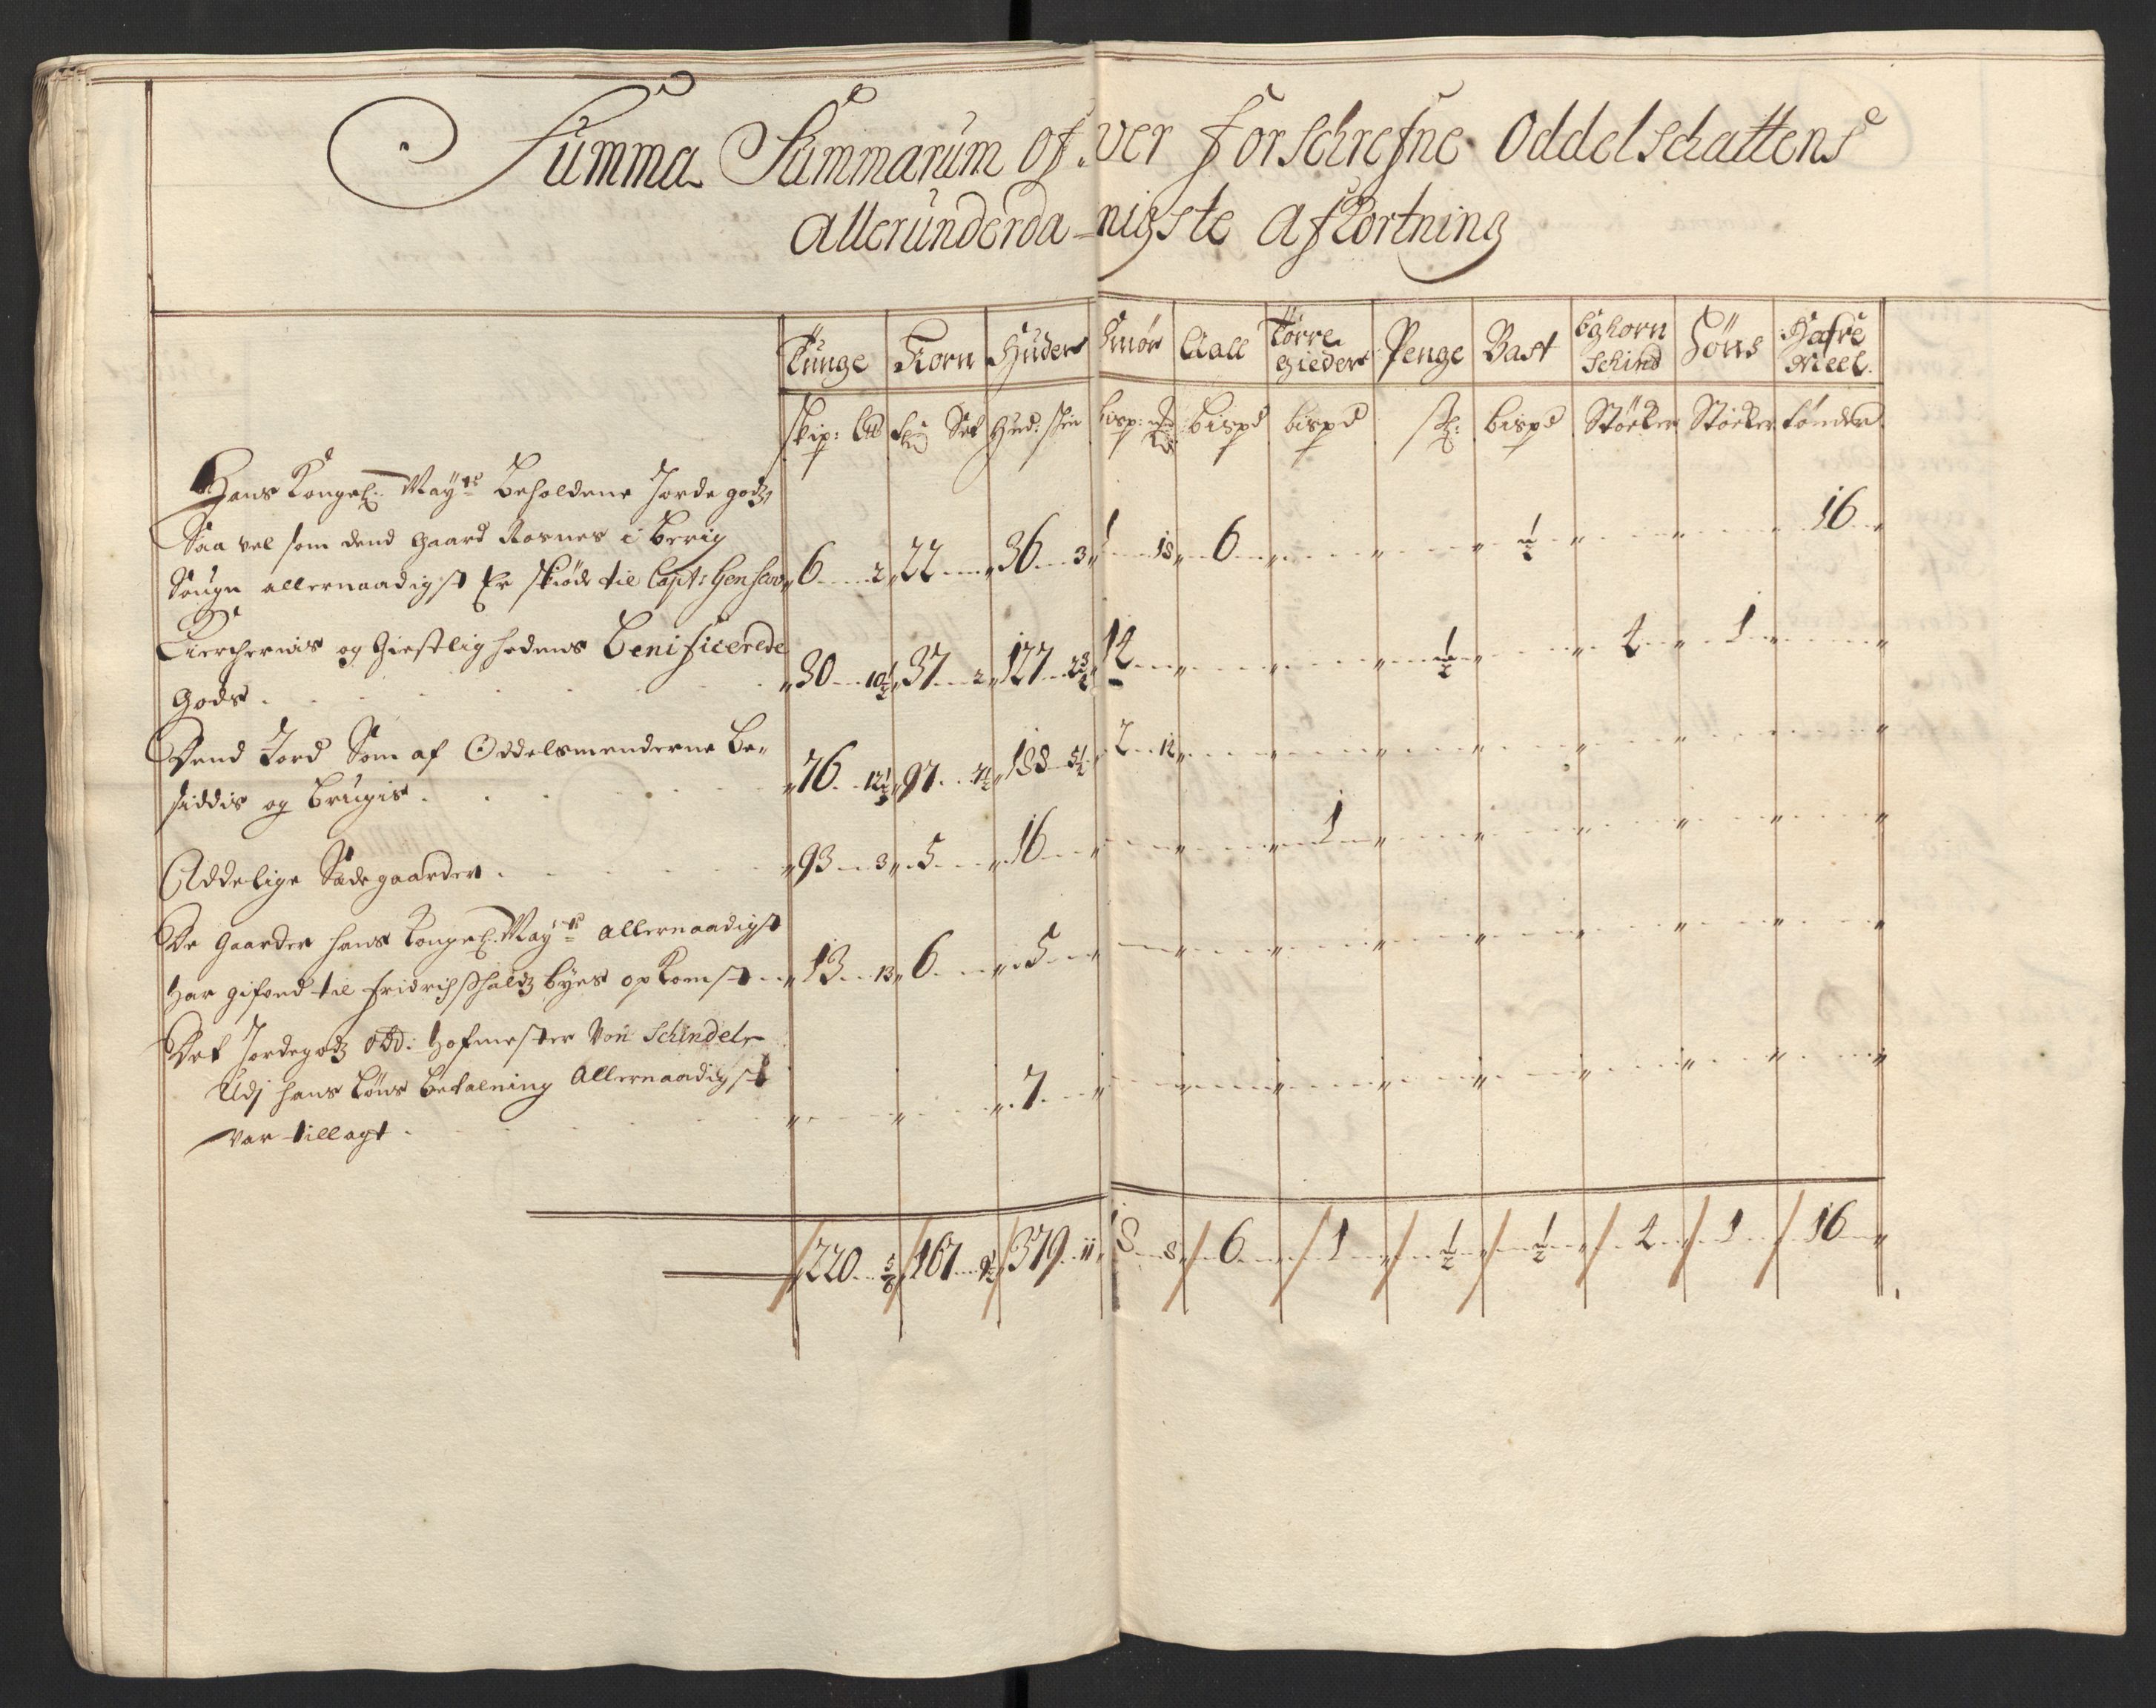 Summa Summarum of.ver forschrefne Oddelschattens
allerunderda=nigste afkortning
Tunge Korn Huder Smør Aall Törre gieder Penge Bast Eghorn Schind Höns Hafre Meel.
skip: Hud: skin bisp: bispd bispd bispd Støcker Støcker tønder
Hans Kongel: Mayts Beholdene Jorde godz
Saa vel som dend Gaard Rosnes i Berig
Sougn allernaadigst Er skiöde til Capt: 6 2 22 36 3 1 18 6 ½ 16
Kierchernis og Giestlighedens Benificerede
Gods 30 10½ 37 2 127 12 ½ 2 1
Dend Jord Som af Oddelsmenderne Be=
siddis og Brugis 76 12½ 97 188 2 12
Addelige Sædegaarder 93 3 5 16 1
De Gaarder hans Kongel: Mayts allernaadigst
har gifved til fridrichshaldz byes opkomst 13 13 6 5
Det Jordegodz Hofmester Von Schindel
Udj hans Löns Betalning Allernaadigst
var tillagt 7
220 167 379 11 8 8 6 1 ½ ½ 2 1 16